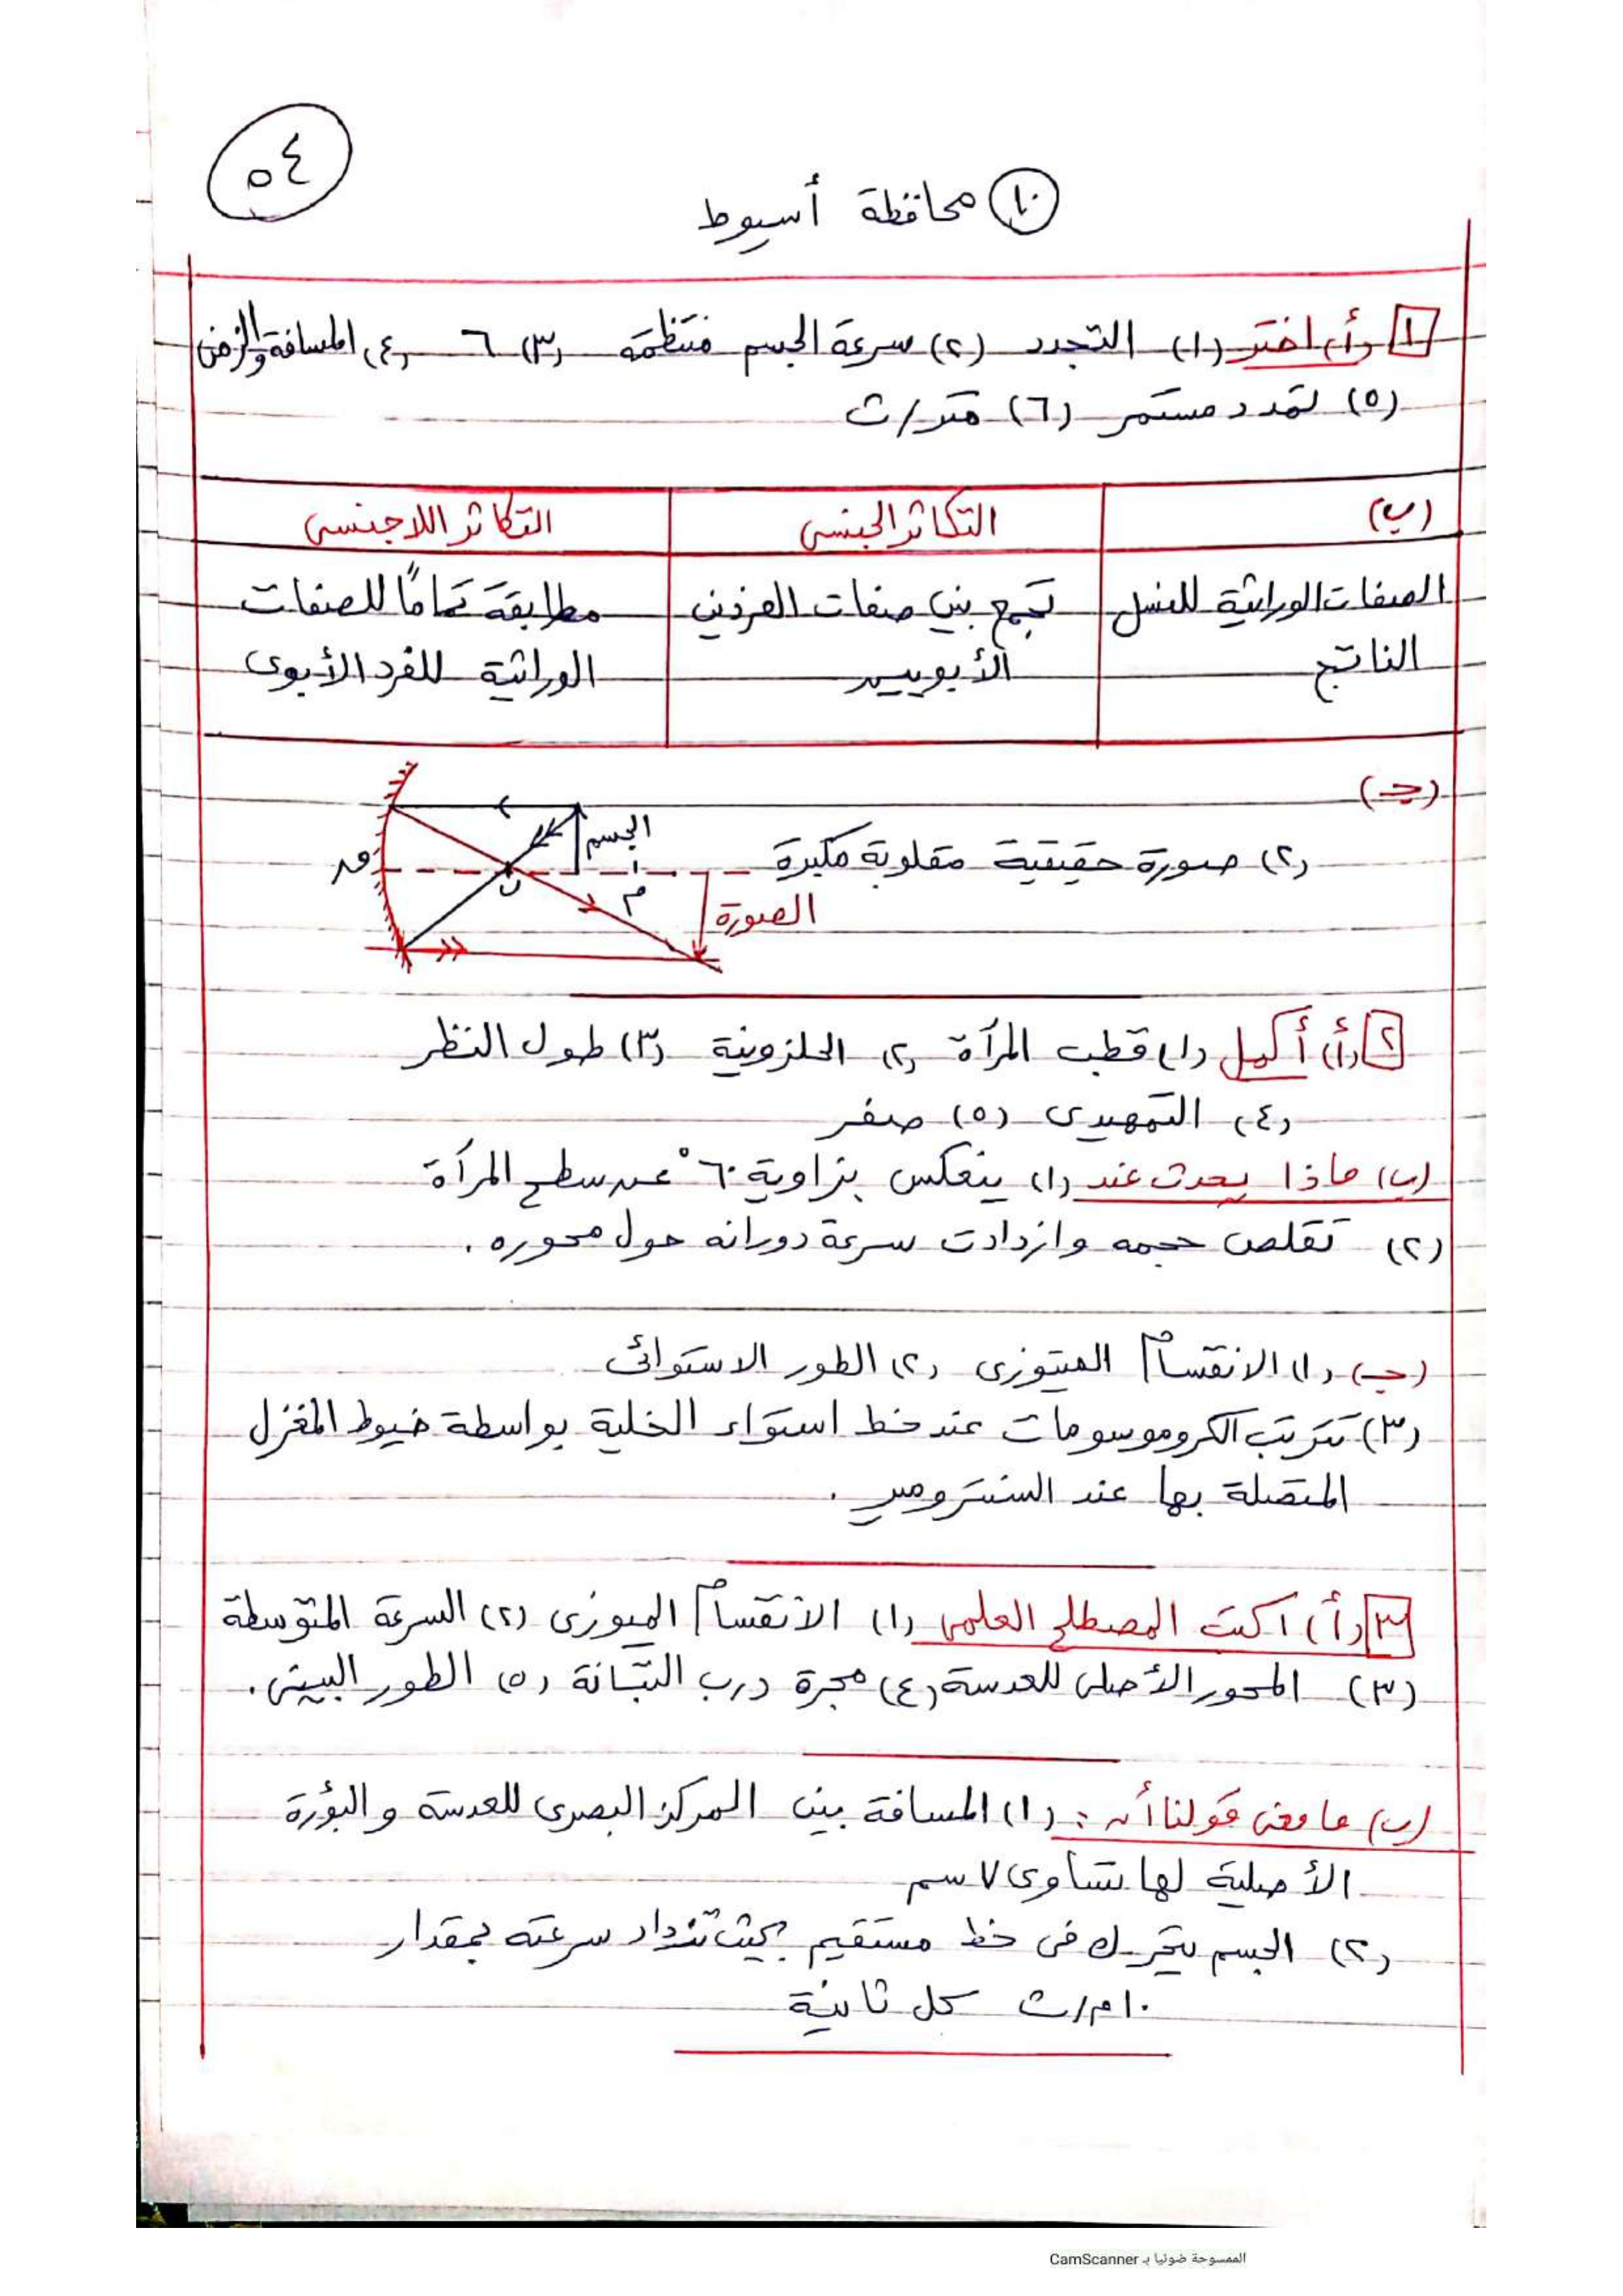 ٥٤
١٠ محافظة أسيوط
١ (أ) اختر (١) التجدد (٢) سرعة الجسم منتظمة (٣) ٦ (٤) المسافة والزمن
(٥) تمدد مستمر (٦) متر/ث
(ب) التكاثر الجنسى التكاثر اللاجنسى
الصفات الوراثية للنسل تجمع بين صفات الفردين مطابقة تمامًا للصفات
الناتج الأبويين الوراثية للفرد الأبوى
(جـ)
الجسم
(٢) صورة حقيقية مقلوبة مكبرة
م
الصورة
٢ (أ) أكمل (١) قطب المرآة (٢) الحلزونية (٣) طول النظر
(٤) التمهيدى (٥) صفر
(ب) ماذا يحدث عند (١) ينعكس بزاوية ٦٠° عن سطح المرآة
(٢) تقلص حجمه وازدادت سرعة دورانه حول محوره .
(جـ) (١) الانقسام الميتوزى (٢) الطور الاستوائى
(٣) تترتب الكروموسومات عند خط استواء الخلية بواسطة خيوط المغزل
المتصلة بها عند السنترومير .
٣ (أ) اكتب المصطلح العلمى (١) الانقسام الميوزى (٢) السرعة المتوسطة
(٣) المحور الأصلى للعدسة (٤) مجرة درب التبانة (٥) الطور البينى .
(ب) ما معنى قولنا أن : (١) المسافة بين المركز البصرى للعدسة والبؤرة
الأصلية لها تساوى ٧ سم
(٢) الجسم يتحرك فى خط مستقيم بحيث تزداد سرعته بمقدار
١٠ م/ث كل ثانية
الممسوحة ضوئيا بـ CamScanner